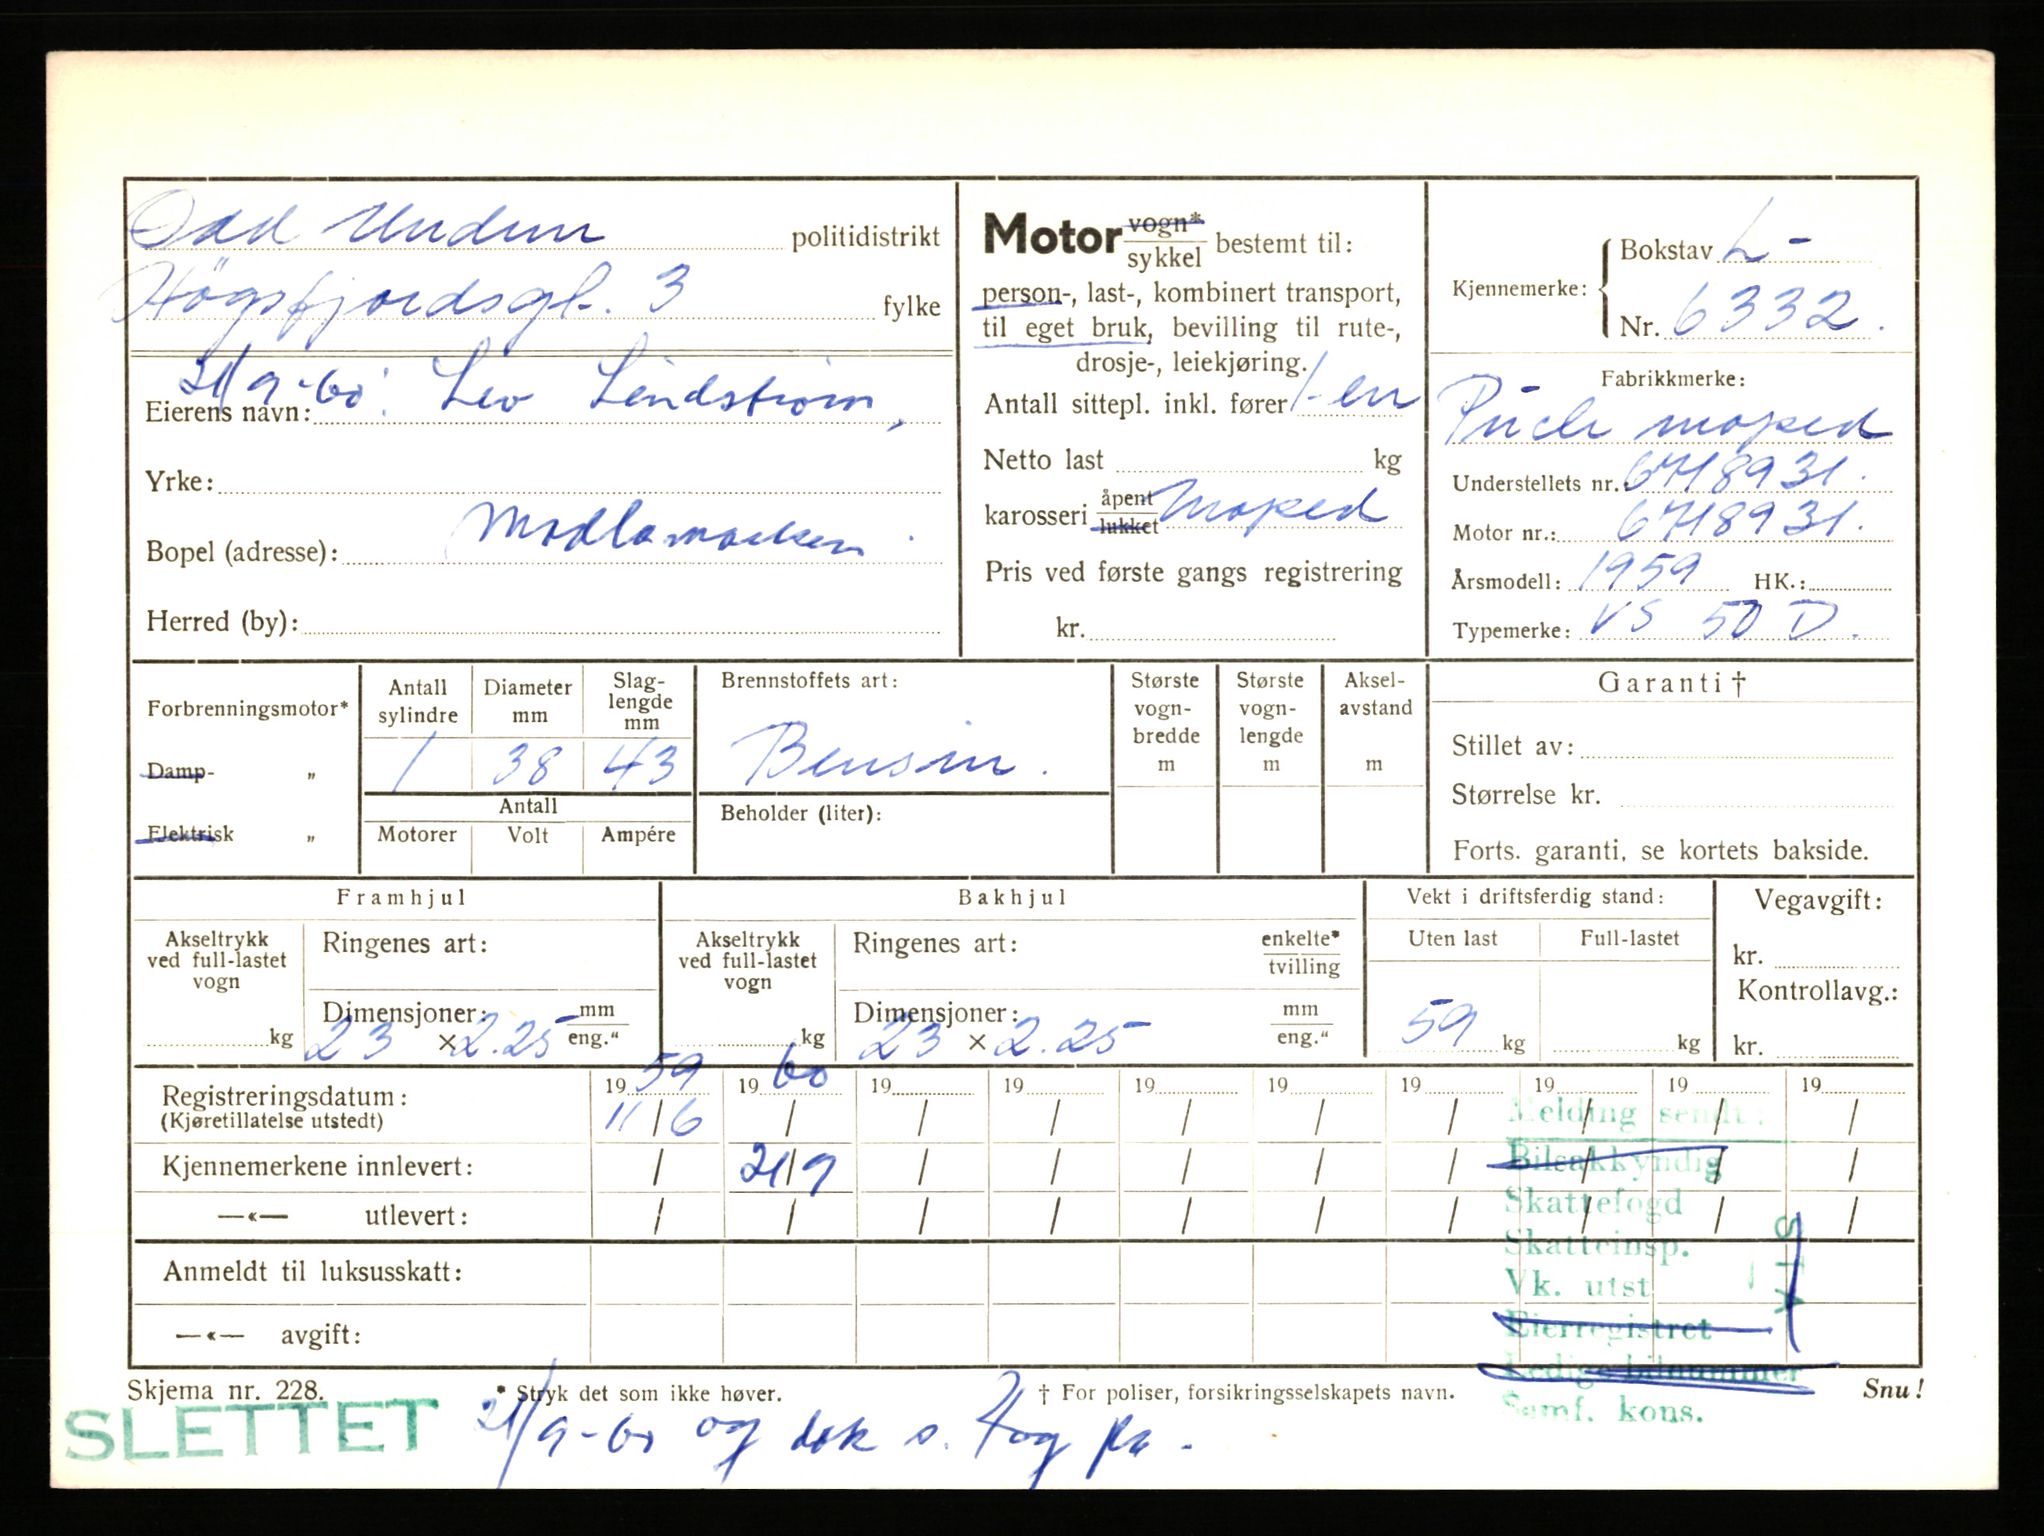 Odd Undem politidistrikt
Högsfjordsgt. 3 fylke
21/9-60: Leo Lindstrøm,
Eierens navn:
Yrke:
Bopel (adresse): Madlamarken
Herred (by):
Motor vogn* / sykkel bestemt til:
person-, last-, kombinert transport,
til eget bruk, bevilling til rute-,
drosje-, leiekjøring.
Antall sittepl. inkl. fører 1-en
Netto last kg
karosseri åpent / lukket Moped
Pris ved første gangs registrering
kr.
Kjennemerke: Bokstav L-
Nr. 6332.
Fabrikkmerke:
Puch moped
Understellets nr.: 6718931.
Motor nr.: 6718931.
Årsmodell: 1959 HK.:
Typemerke: VS 50 D.
Forbrenningsmotor*
Damp- „
Elektrisk „
Antall sylindre Diameter mm Slag-lengde mm
1 38 43
Antall
Motorer Volt Ampére
Brennstoffets art:
Bensin.
Beholder (liter):
Største vogn-bredde m
Største vogn-lengde m
Aksel-avstand m
Garanti †
Stillet av:
Størrelse kr.
Forts. garanti, se kortets bakside.
Framhjul
Akseltrykk ved full-lastet vogn
kg
Ringenes art:
Dimensjoner: mm / eng."
23 × 2.25
Bakhjul
Akseltrykk ved full-lastet vogn
kg
Ringenes art: enkelte* / tvilling
Dimensjoner: mm / eng."
23 × 2.25
Vekt i driftsferdig stand:
Uten last Full-lastet
59 kg kg
Vegavgift:
kr.
Kontrollavg.:
kr.
Registreringsdatum: 19 59 19 60 19 19 19 19 19 19 19 19
(Kjøretillatelse utstedt) 11/6 / / / / / / / / /
Kjennemerkene innlevert: / 21/9 / / / / / / / /
—«— utlevert: / / / / / / / / / /
Anmeldt til luksusskatt:
—«— avgift:
Melding sendt:
Bilsakkyndig
Skattefogd
Skatteinsp.
Vk. utst
Eierregistret
Ledige bilnummer
Samf. kons.
Skjema nr. 228. * Stryk det som ikke høver. † For poliser, forsikringsselskapets navn. Snu!
SLETTET 21/9-60 og